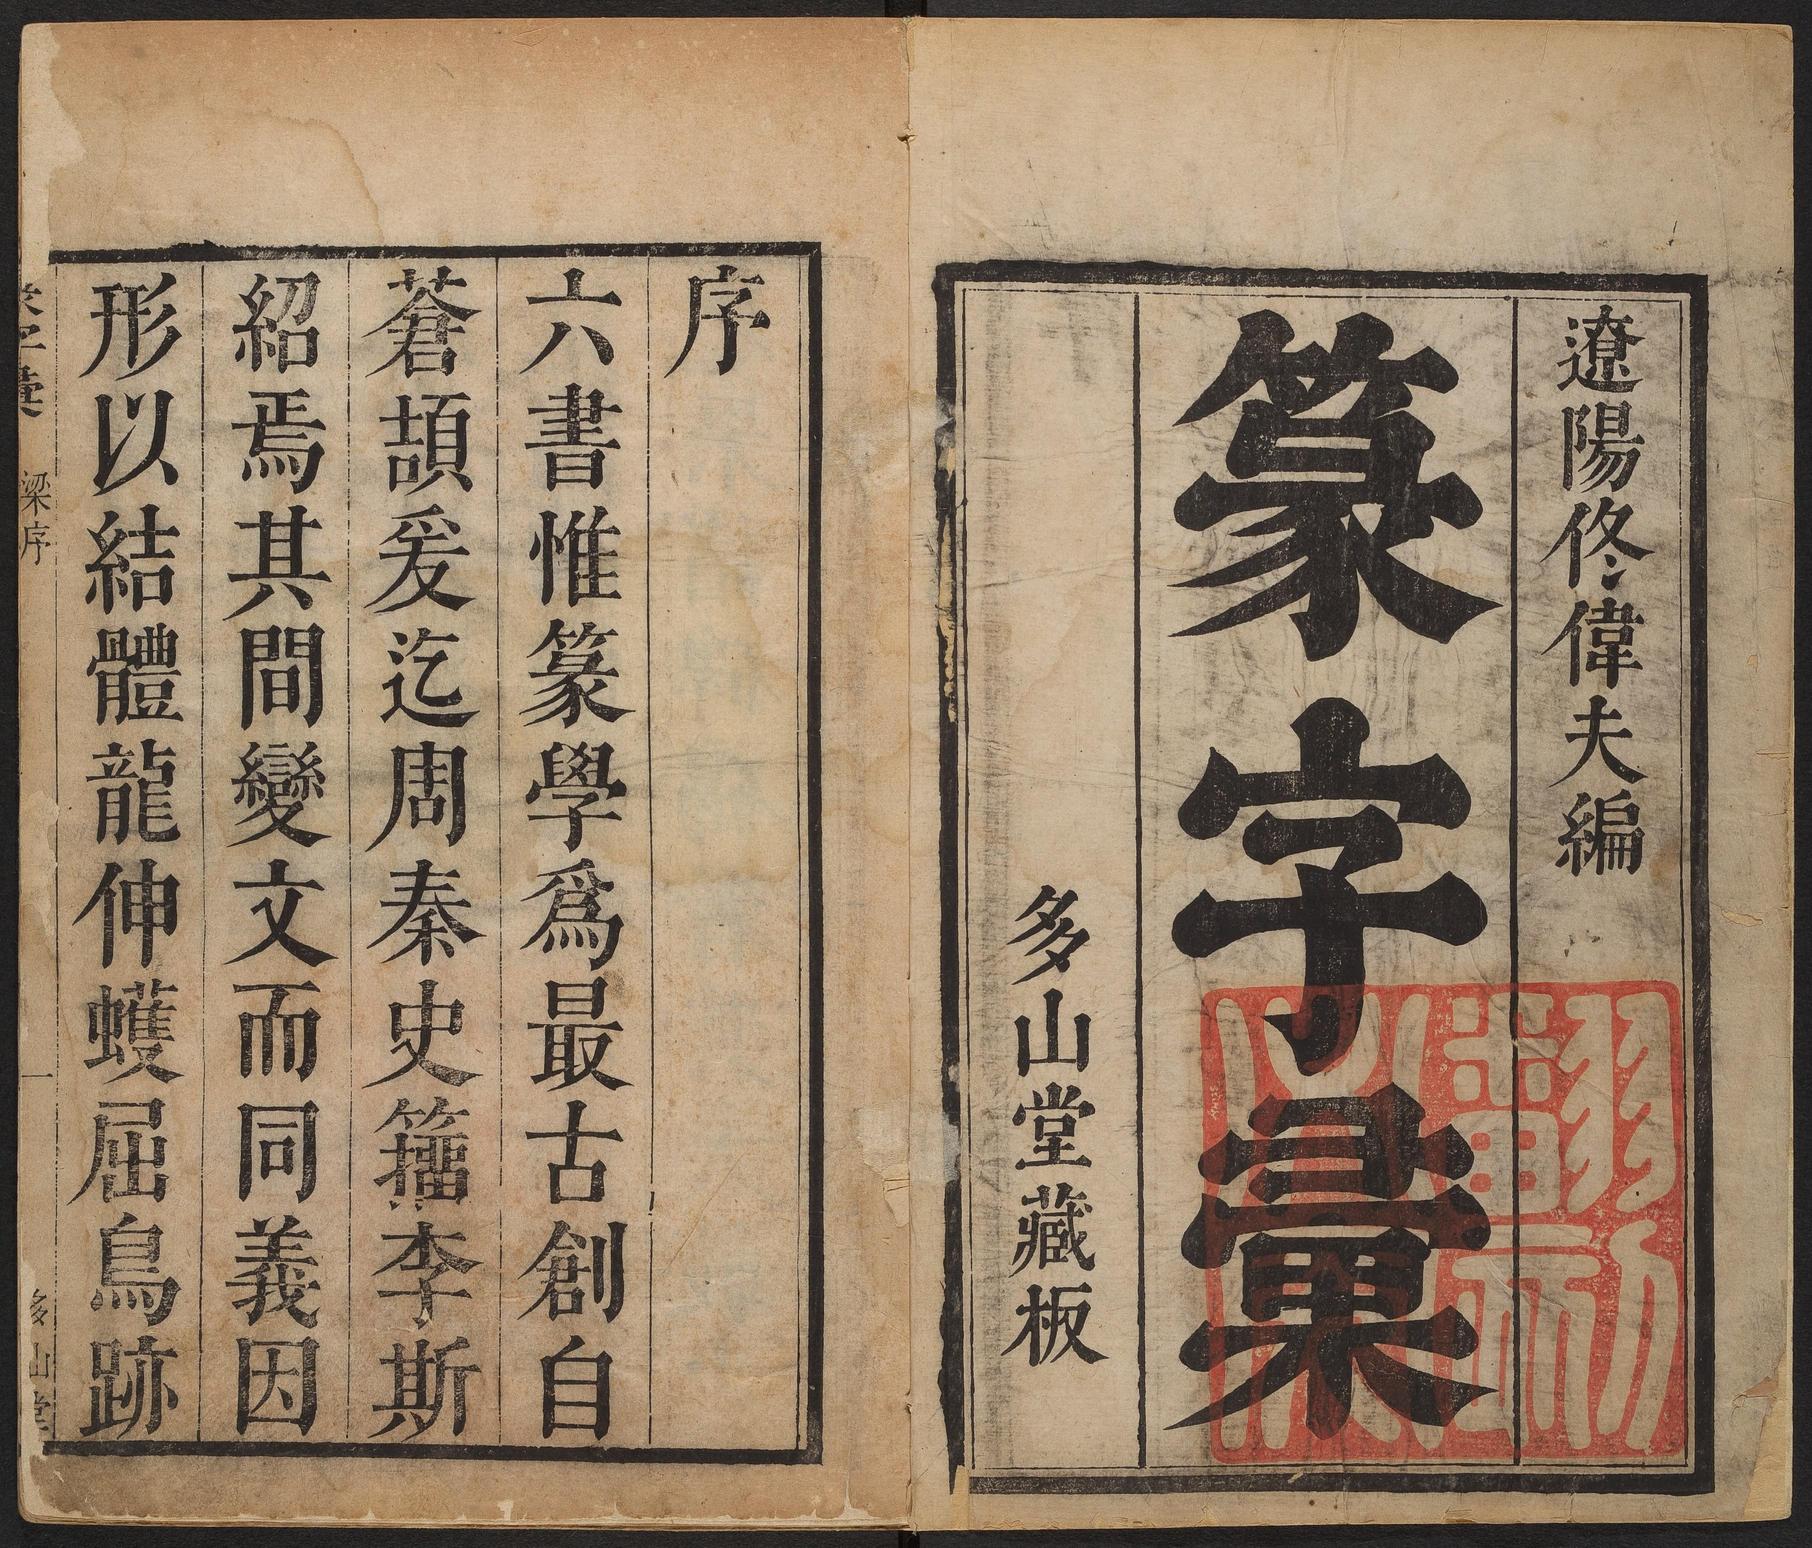 遼陽佟偉夫編
篆字彙
多山堂藏板
序
六書惟篆學爲最古創自
蒼頡爰迄周秦史籒李斯
紹焉其間變文而同義因
形以結體龍伸蠖屈鳥跡
字彙 梁序 一 多山堂